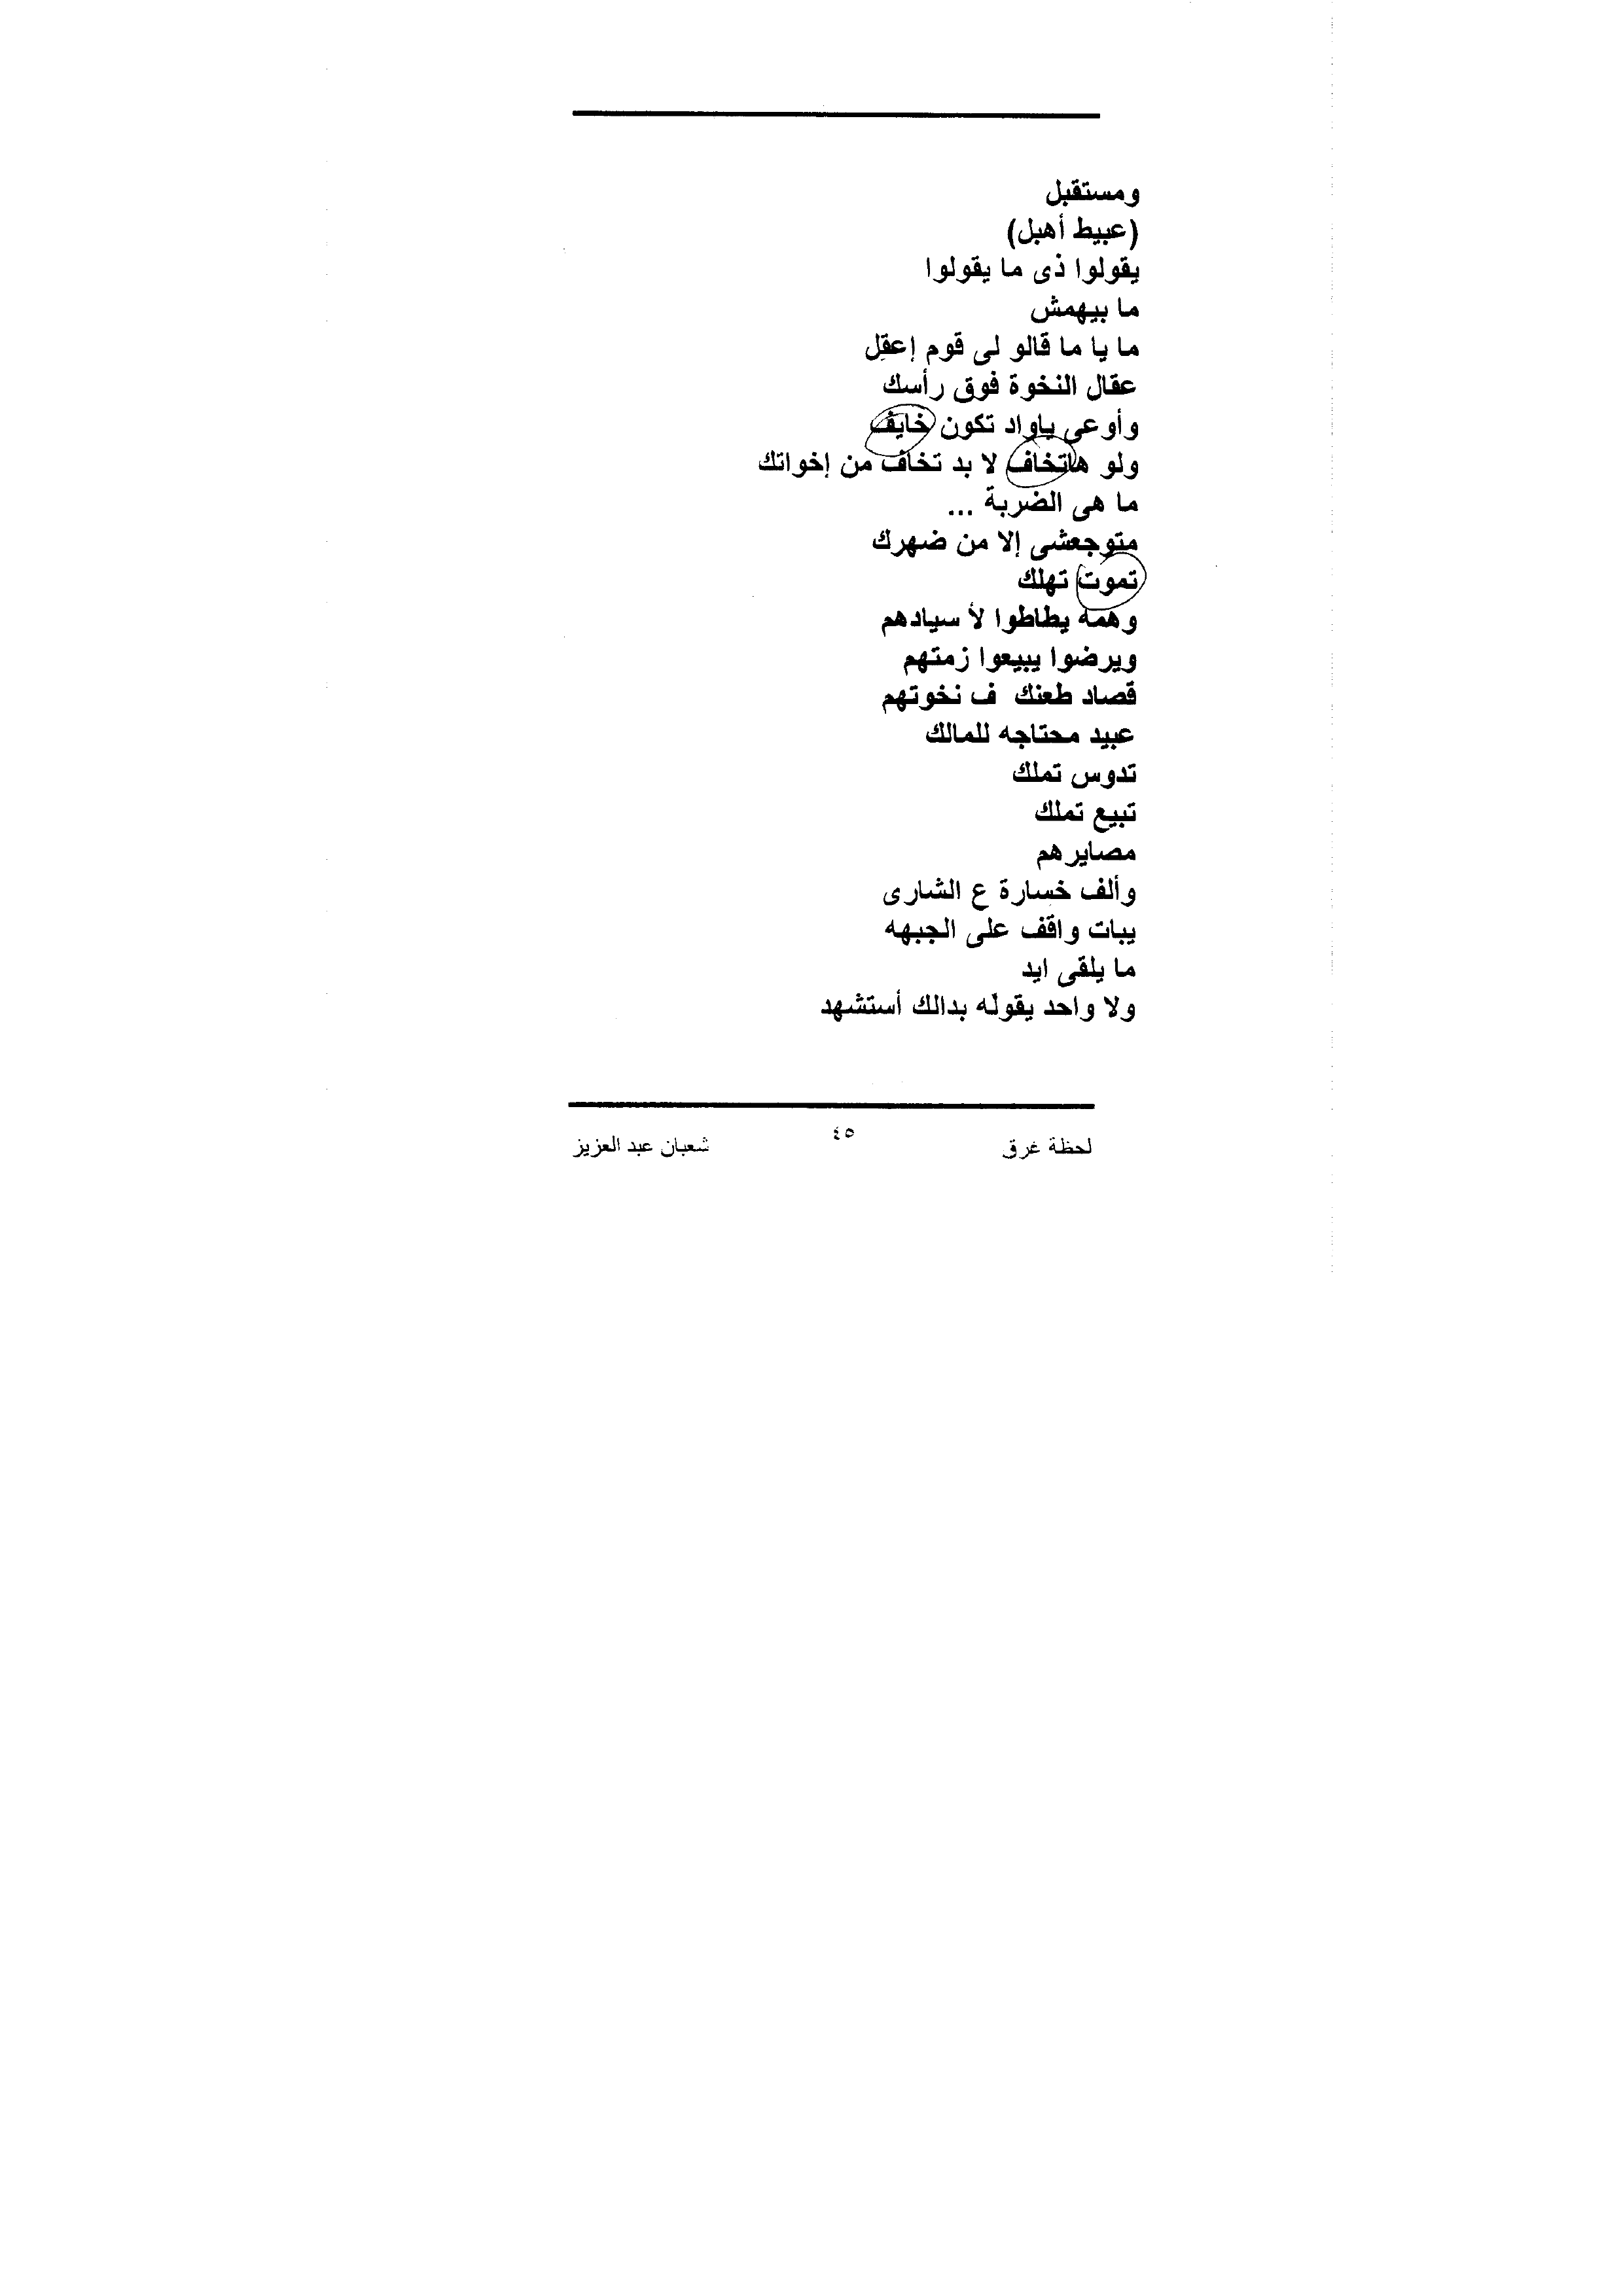 ومستقبل
(عبيط أهبل)
يقولوا ذى ما يقولوا
ما بيهمش
ما يا ما قالو لى قوم إعقل
عقال النخوة فوق رأسك
وأوعى ياواد تكون خايف
ولو هاتخاف لا بد تخاف من إخواتك
ما هى الضربة ...
متوجعشى إلا من ضهرك
تموت تهلك
وهمه يطاطوا لأ سيادهم
ويرضوا يبيعوا زمتهم
قصاد طعنك ف نخوتهم
عبيد محتاجه للمالك
تدوس تملك
تبيع تملك
مصايرهم
وألف خسارة ع الشارى
يبات واقف على الجبهه
ما يلقى ايد
ولا واحد يقولّه بدالك أستشهد
لحظة غرق ٤٥ شعبان عبد العزيز